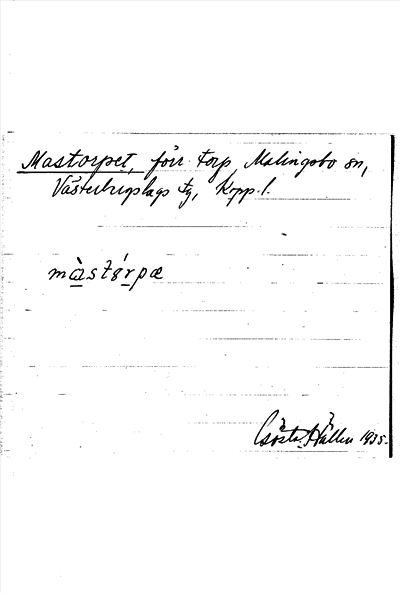 Mastorpet, förr torp Malingsbo sn,
Västerbergslags tg, Kopp. l.
màstórpæ
Gösta Hållen 1935.